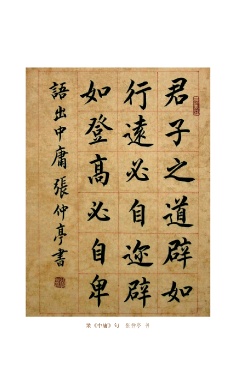 君子之道辟如
行遠必自迩辟
如登高必自卑
語出中庸張仲亭書
录《中庸》句 张仲亭 书